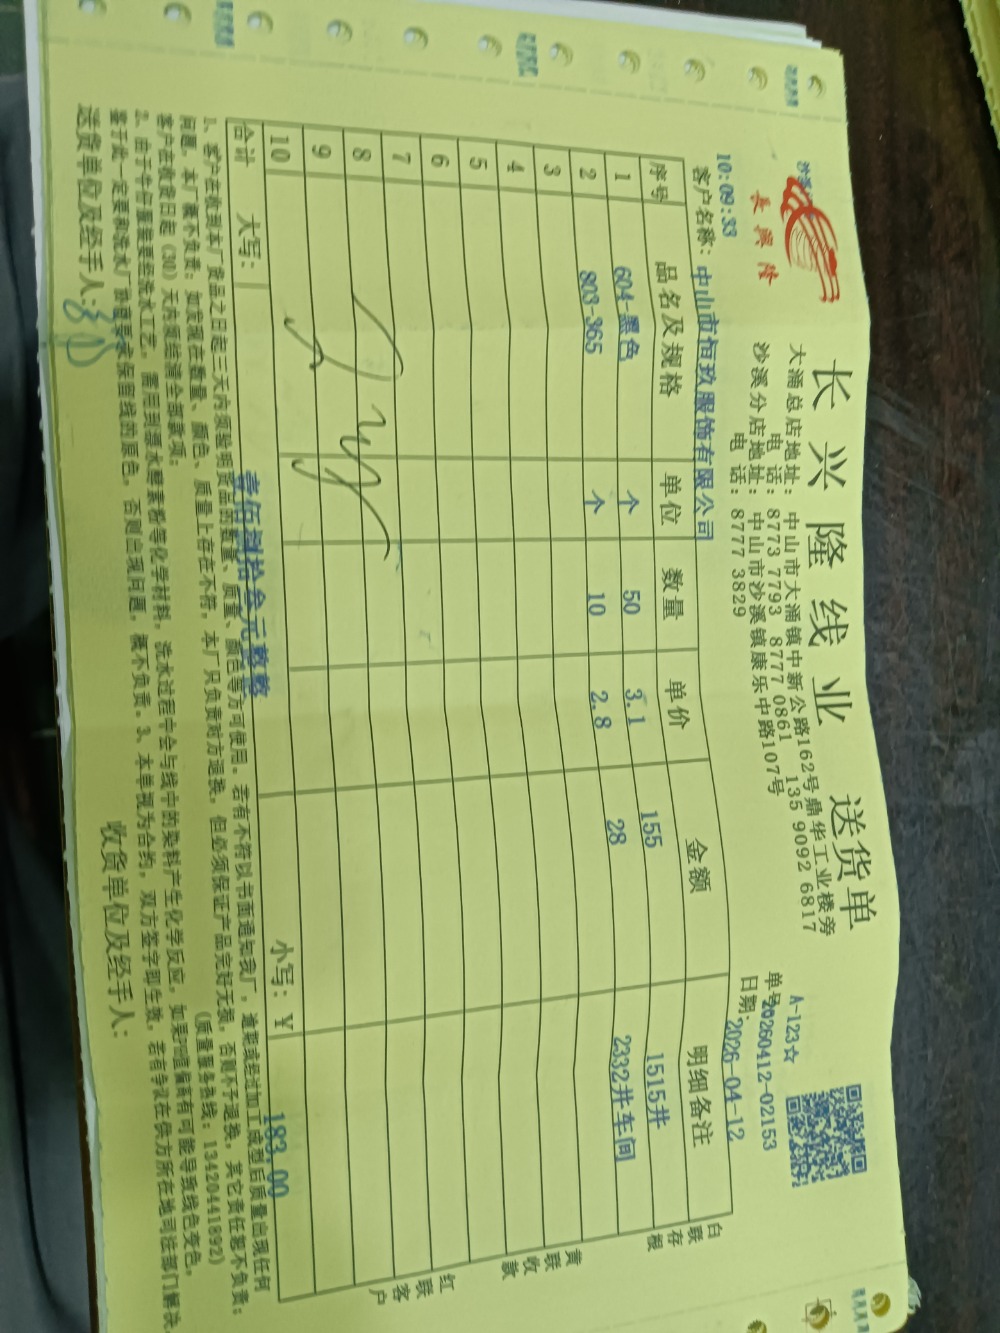 長興隆
长兴隆线业 送货单
大涌总店地址: 中山市大涌镇中新公路162号鼎华工业楼旁
电 话: 8773 7793 8777 0861 135 9092 6817
沙溪分店地址: 中山市沙溪镇康乐中路107号
电 话: 8777 3829
A-123☆
单号: 20260412-02153
日期: 2026-04-12
10:09:33
客户名称: 中山市恒玖服饰有限公司
序号 品名及规格 单位 数量 单价 金额 明细备注
1 604 黑色 个 50 3.1 155 1515井
2 803-365 个 10 2.8 28 2332井车间
3
4
5
6
7
8
9
10
合计 大写: 壹佰捌拾叁元整 小写: ¥ 183.00
白联存根
黄联收款
红联客户
1、客户在收到本厂货品之日起三天内须验明货品的数量、质量、颜色等方可使用。若有不符以书面通知我厂，逾期或经过加工成型后质量出现任何
问题，本厂概不负责；如发现在数量、颜色、质量上存在不符，本厂只负责对方退换，但必须保证产品完好无损，否则不予退换，其它责任恕不负责；
客户在收货日起（30）天内须结清全部款项； (质量服务热线: 13420441892)
2、由于牛仔服装要经洗水工艺，需用到漂水酵素粉等化学材料，洗水过程中会与线中的染料产生化学反应，如果PH值偏高有可能导致线色变色，
鉴于此一定要和洗水厂讲明要求保留线的原色，否则出现问题，概不负责。3、本单视为合约，双方签字即生效，若有争议在供方所在地司法部门解决。
送货单位及经手人: 收货单位及经手人: